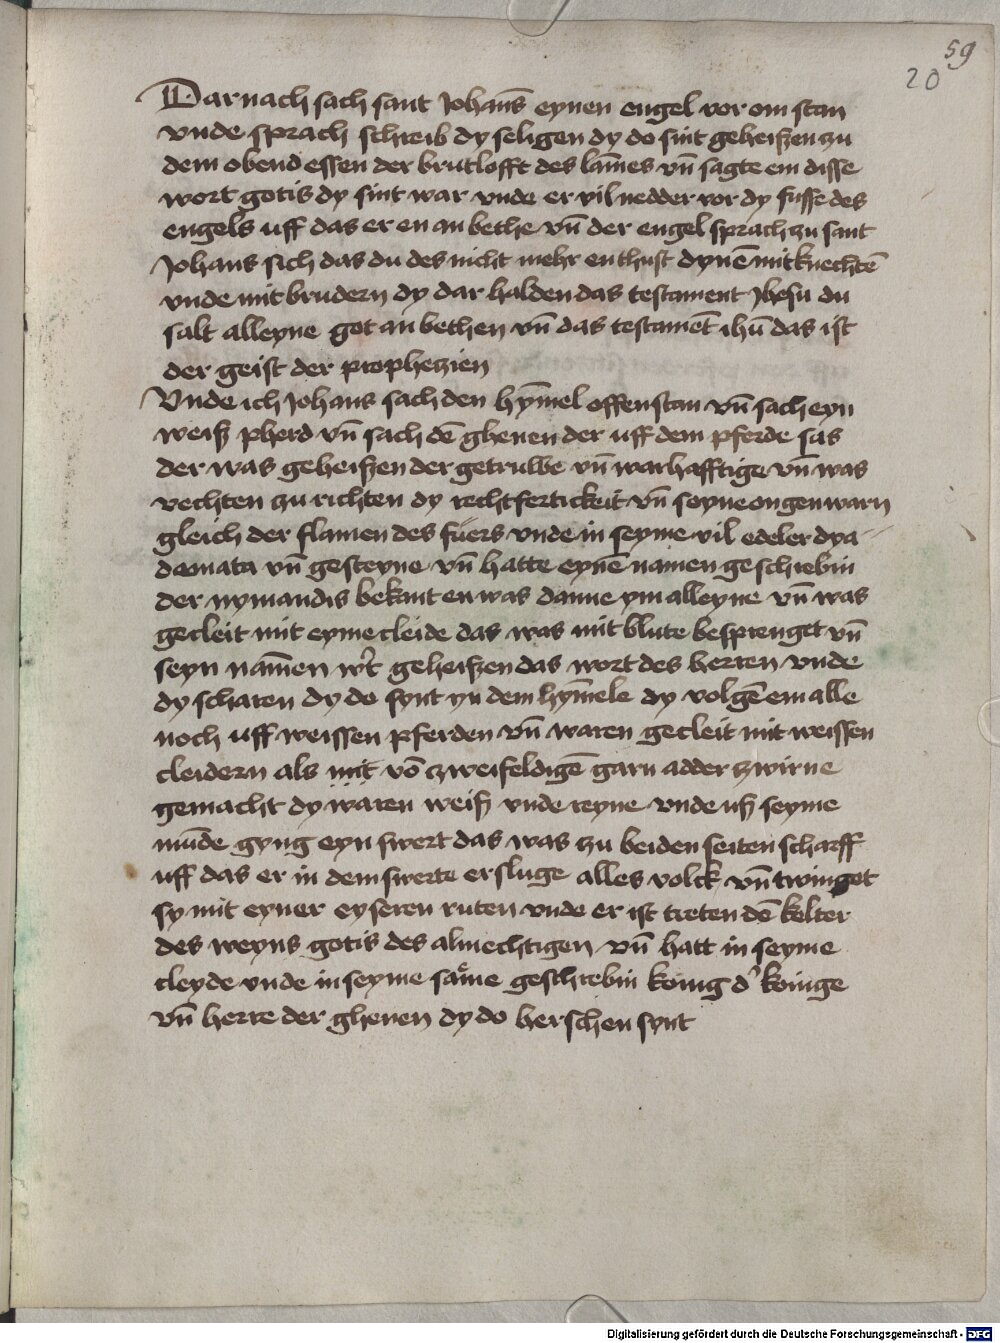 59
20
Darnach sach sant Johan̄s eynen engel vor om stan
vnde sprach schreib dy seligen dy do sint geheißen zu
dem obend essen der brutlofft des lam̄es vn̄ sagte em disse
wort gotis dy sint war vnde er vil nedder vor dy fusse des
engels uff das er en an bethe vn̄ der engel sprach zu sant
Johans sich das du des nicht mehr enthust dynē mitknechtē
vnde mit brudern dy dar halden das testament Jhesu du
salt alleyne got an bethen vn̄ das testamēt ihū das ist
der geist der prophezien
Vnde ich Johans sach den hym̄el offenstan vn̄ sach eyn
weiß pherd vn̄ sach dē ghenen der uff dem pferde sas
der was geheißen der getruwe vn̄ warhafftige vn̄ was
rechten zu richten dy rechtfertickeit vn̄ seyne ougen warn
gleich der flamen des fuers vnde in seyme vil edeler dya
demata vn̄ gesteyne vn̄ hatte eynē namen geschrebin
der nymandis bekant en was danne ym alleyne vn̄ was
gecleit mit eyme cleide das was mit blute besprenget vn̄
seyn nam̄en wt geheißen das wort des herren vnde
dy scharen dy do synt yn dem hym̄ele dy volgē em alle
noch uff weissen pferden vn̄ waren gecleit mit weissen
cleidern als mit vō zweifeldigē garn adder zwirne
gemacht dy waren weiß vnde reyne vnde uß seyme
mūde gyng eyn swert das was zu beiden seiten scharff
uff das er in dem swerte ersluge alles volck vn̄ twinget
sy mit eyner eyseren ruten vnde er ist treten dē kelter
des weyns gotis des almechtigen vn̄ hatt in seyme
cleyde vnde in seyme geschrebin konig d' konige
vn̄ herre der ghenen dy do herschen synt
Digitalisierung gefördert durch die Deutsche Forschungsgemeinschaft - DFG